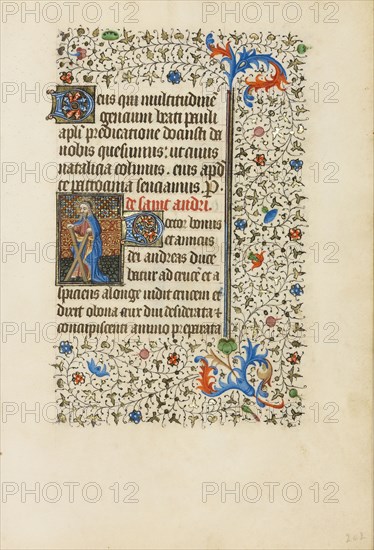 Deus qui multitudine
gencium beati pauli
apli predicatione docuisti da
nobis quesumus ut cuius
natalicia colimus. eius apd
te patrocinia senciamus. P
de saint andri.
Doctor bonus
et amicus
dei andreas duce
batur ad crucem et a
spiciens a longe vidit crucem et
dixit o bona crux diu desiderata et
concupiscenti animo preparata
202
PHOTO12